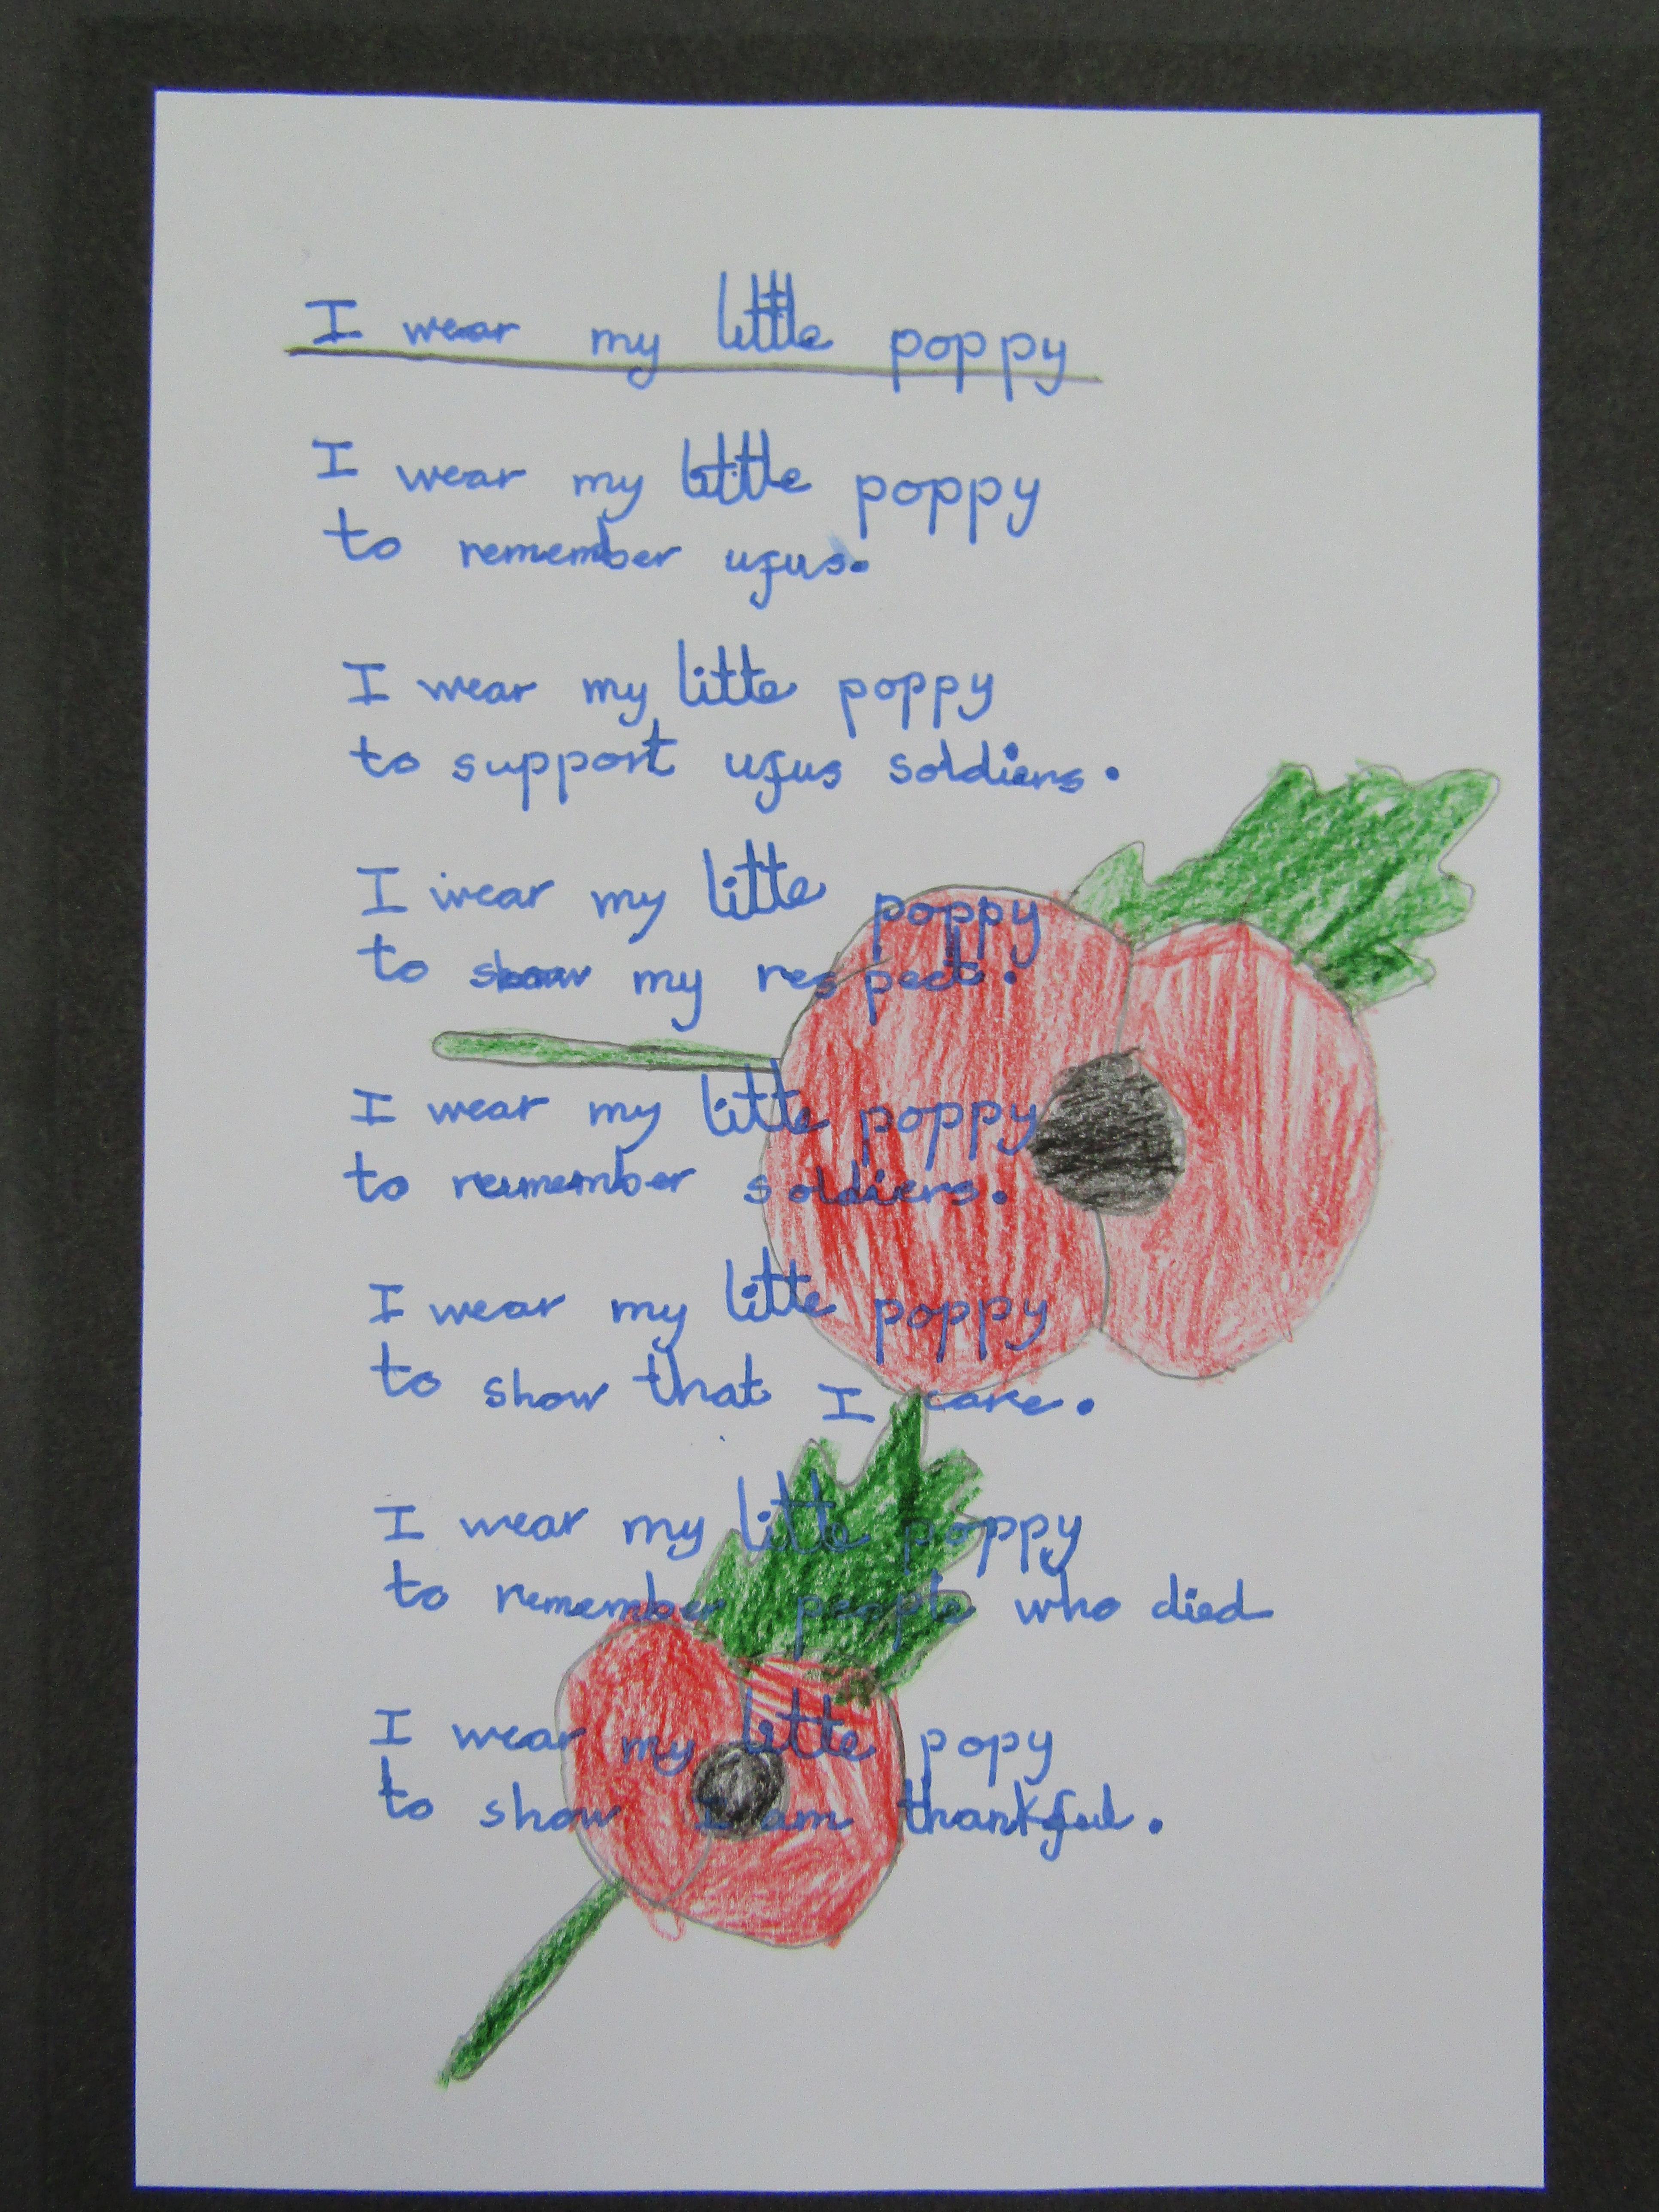 I wear my little poppy
I wear my little poppy
to remember ufus.
I wear my litte poppy
to support ufus soldiers.
I wear my litte poppy
to show my respect.
I wear my litte poppy
to reumember soldiers.
I wear my litte poppy
to show that I care.
I wear my litte poppy
to remember people who died
I wear my litte popy
to show I am thankful.